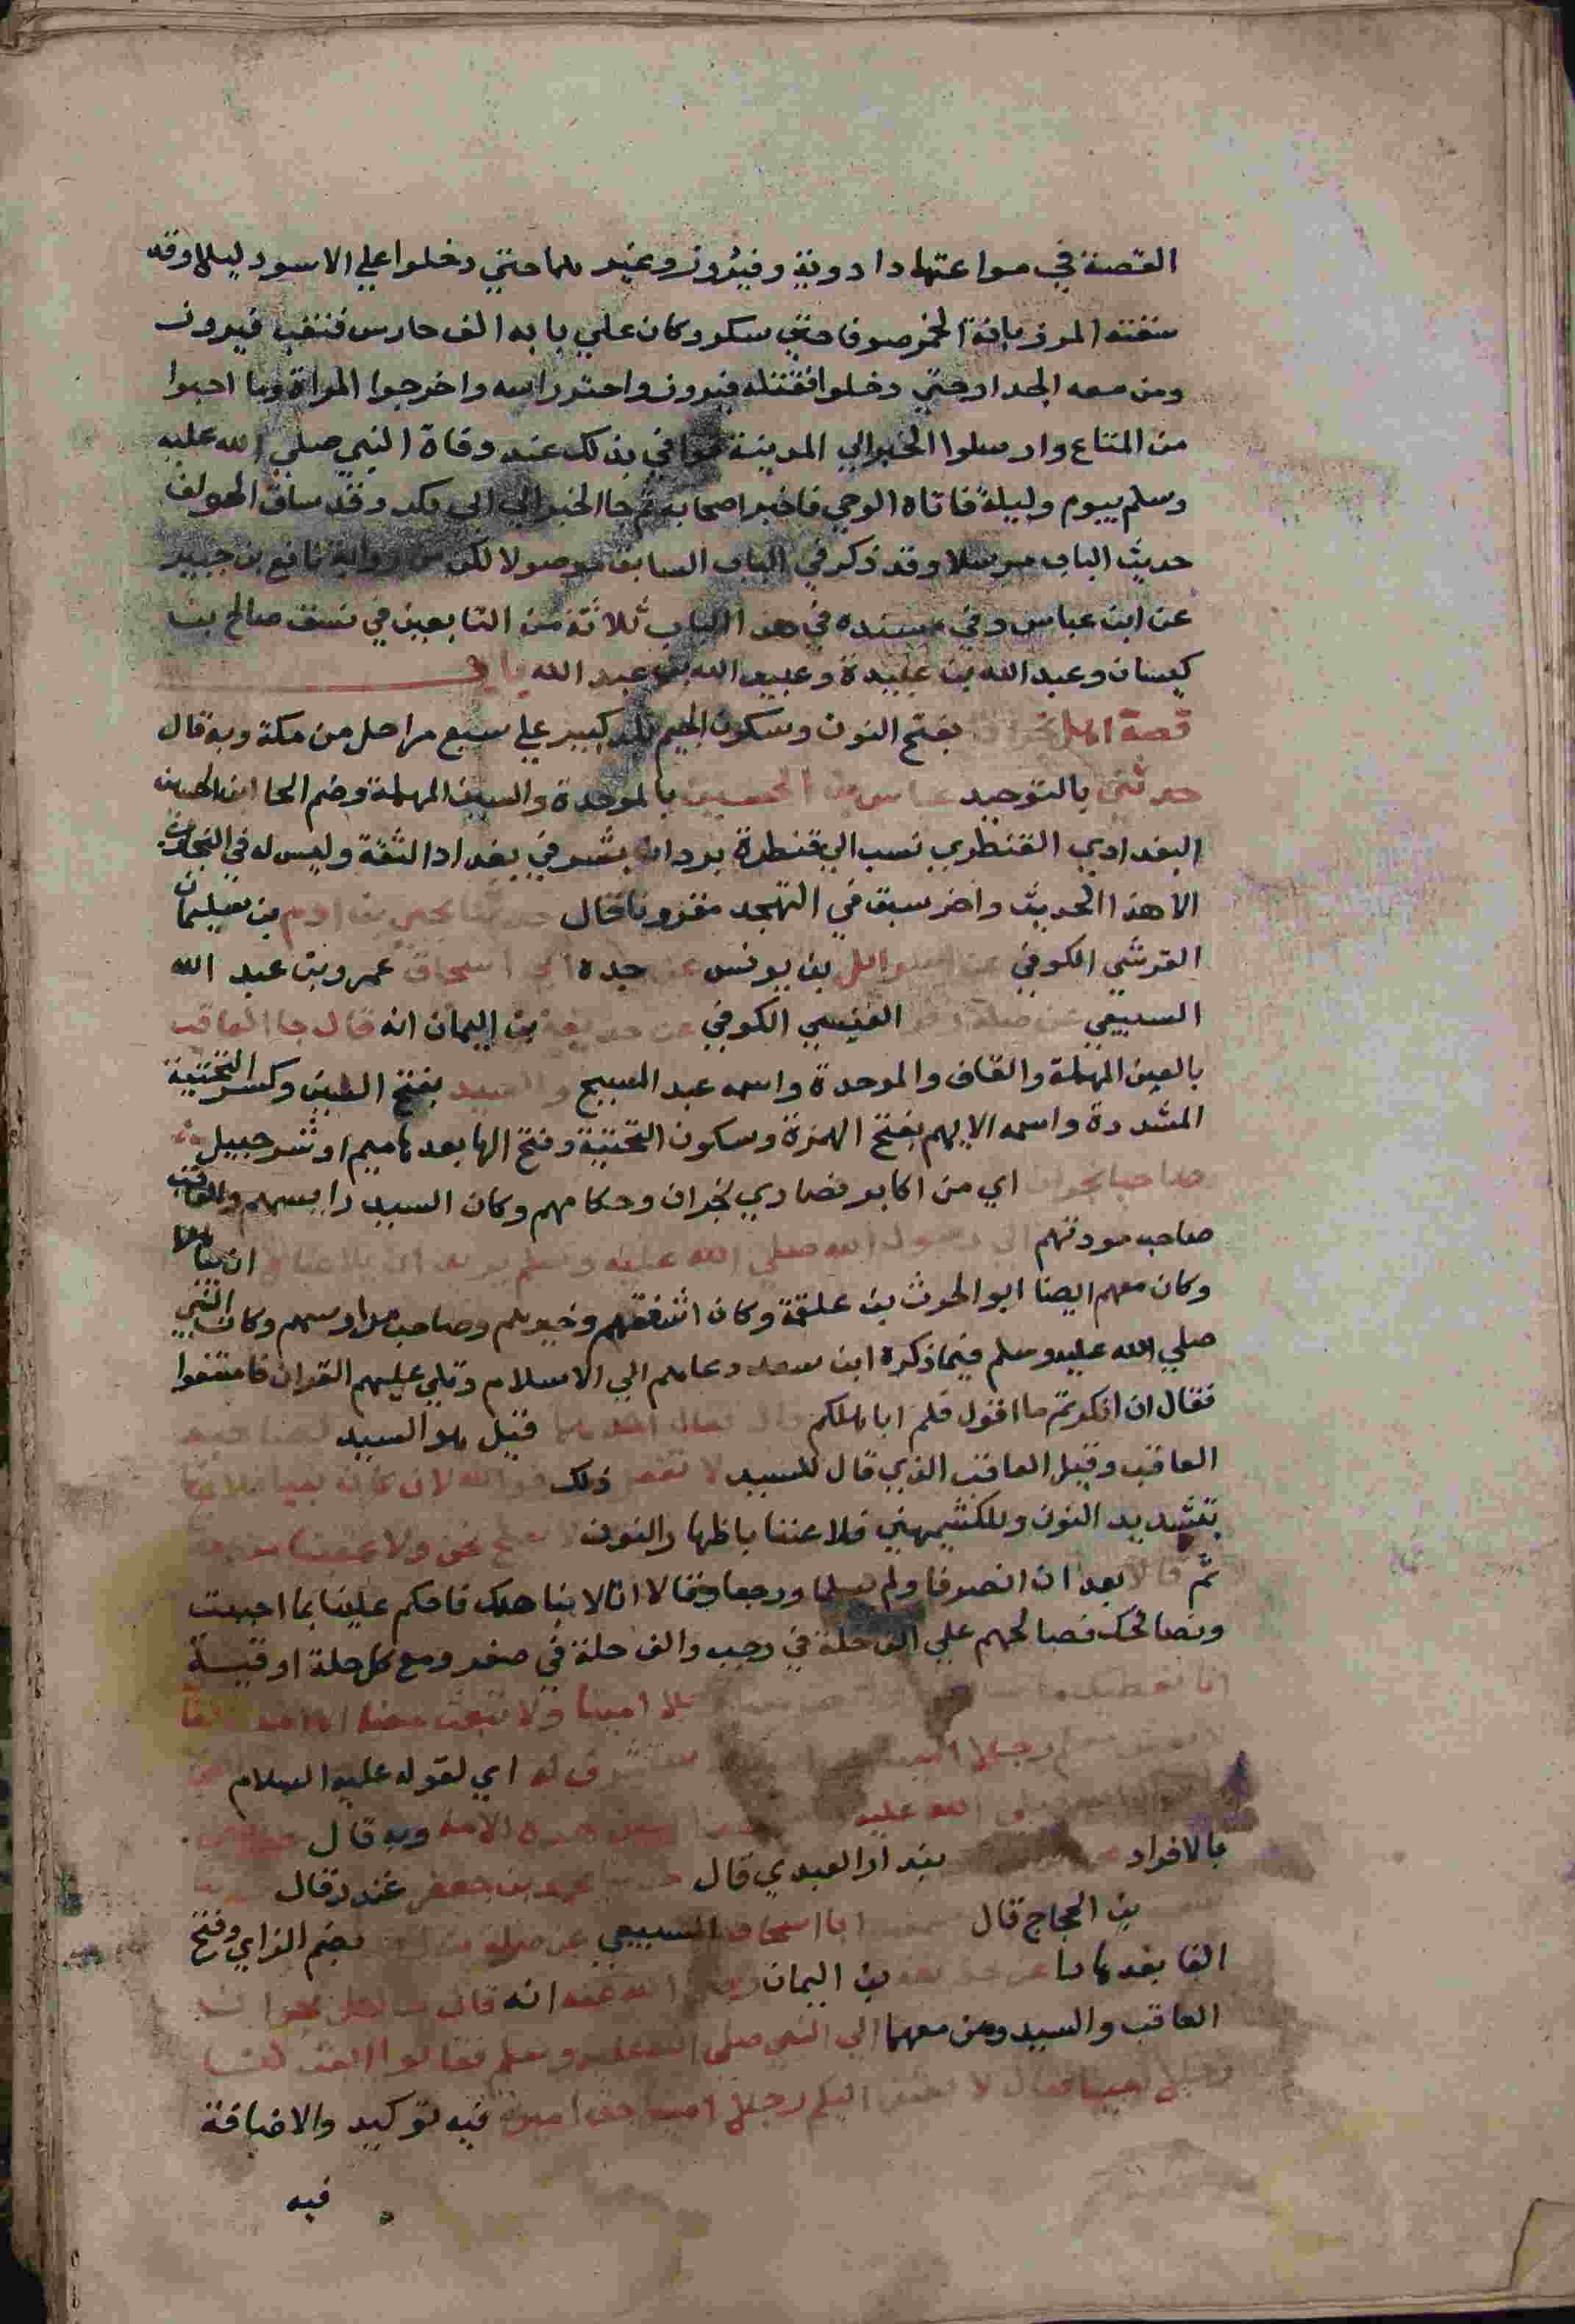 القصة في مواعتها دادوية وفيروز وغيرهما حتي دخلوا علي الاسود ليلا وقد
سقته المرزبانة الخمر صرفا حتي سكر وكان علي بابه الف حارس فنقب فيروز
ومن معه الجدار حتي دخلوا فقتله فيروز واحتز راسه واخرجوا المراة وما احبوا
من المتاع وارسلوا الخبر الي المدينة فوافي بذلك عند وفاة النبي صلي الله عليه
وسلم بيوم وليلة فاتاه الوحي فاخبر اصحابه ثم جا الخبر الي ابي بكر وقد ساق المولف
حديث الباب مرسلا وقد ذكر في الباب السابق موصولا لكن من رواية نافع بن جبير
عن ابن عباس وفي مسنده في هذا الباب ثلاثة من التابعين في نسق صالح بن
كيسان وعبد الله بن عبيدة وعبيد الله بن عبد الله باب
قصة اهل نجران بفتح النون وسكون الجيم بلد كبير علي سبع مراحل من مكة وبه قال
حدثني بالتوحيد عباس بن الحسين بالموحدة والسين المهملة وضم الحا ابن الحسين
البغدادي القنطري نسب الي قنطرة بردان بشرقي بغداد الثقة وليس له في البخاري
الا هذا الحديث واخر سبق في التهجد مقرونا قال حدثنا يحيي بن ادم بن سليمان
القرشي الكوفي عن اسرائل بن يونس عن جده ابي اسحاق عمرو بن عبد الله
السبيعي عن صلة بن زفر العبسي الكوفي عن حذيفة بن اليمان انه قال جا العاقب
بالعين المهملة والقاف والموحدة واسمه عبد المسيح والسيد بفتح السين وكسر التحتية
المشددة واسمه الايهم بفتح الهمزة وسكون التحتية وفتح الها بعدها ميم او شرحبيل
صاحبا نجران اي من اكابر نصاري نجران وحكامهم وكان السيد رايسهم والعاقب
صاحب مودتهم الي رسول الله صلي الله عليه وسلم يريدان ان يلاعناه ان يباهلا
وكان معهم ايضا ابو الحرث بن علقمة وكان اشقفهم وخبرهم وصاحب مدارسهم وكان النبي
صلي الله عليه وسلم فيما ذكره ابن سعد دعاهم الي الاسلام وتلي عليهم القران فامتنعوا
فقال ان انكرتم ما اقول فهلم اباهلكم قال فقال احدهما قيل هو السيد لصاحبه
العاقب وقيل العاقب الذي قال للسيد لا تفعل ذلك فوالله لان كان نبيا فلاعنا
بتشديد النون وللكشميهني فلاعننا باظهار النون لا نفلح نحن ولا عقبنا من بعدنا
ثم قالا بعد ان انصرفا ولم يسلما ورجعا وقالا انا لا نباهلك فاحكم علينا بما احببت
ونصالحك فصالحهم علي الف حلة في رجب والف حلة في صفر ومع كل حلة اوقية
انا نعطيك ما سالتنا وابعث معنا رجلا امينا ولا تبعث معنا الا امينا فقال
لابعثن معكم رجلا امينا حق امين فاستشرف له اي لقوله عليه السلام
رسول الله صلي الله عليه وسلم هذا امين هذه الامة وبه قال حدثني
بالافراد محمد بن بشار بندار العبدي قال حدثنا محمد بن جعفر غندر قال حدثنا
شعبة بن الحجاج قال سمعت ابا اسحاق السبيعي عن صلة بن زفر بضم الزاي وفتح
الفا بعدها را عن حذيفة بن اليمان رضي الله عنه انه قال جا اهل نجران
العاقب والسيد ومن معهما الي النبي صلي الله عليه وسلم فقالوا ابعث لنا
رجلا امينا فقال لابعثن اليكم رجلا امينا حق امين فيه توكيد والاضافة
فيه